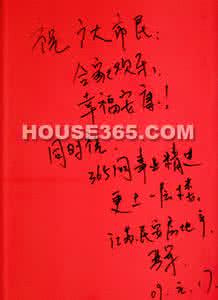 祝广大市民:
合家欢乐,
幸福安康!
HOUSE365.COM
同时祝:
365网事业精进
更上一层楼。
江苏民安房地产
09.元.17